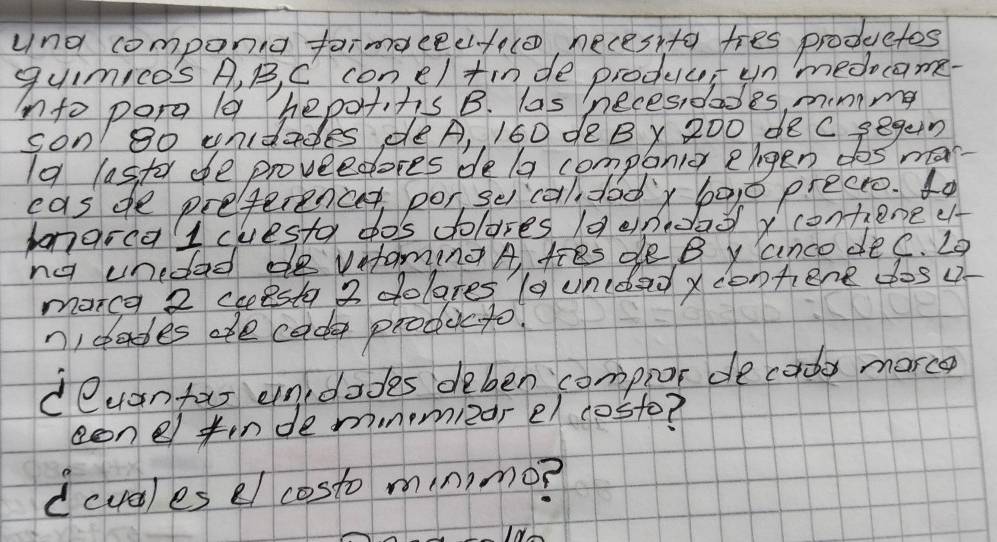 una compania farmaceutica necesita tres productos
quimicos A, B, C con el fin de producir un medicame-
nto para la hepatitis B. las necesidades minima
son 80 unidades de A, 160 de B y 200 de C segun
la lista de proveedores de la compania eligen dos mar-
cas de preferencia por su calidad y bajo precio. La
marca 1 cuesta dos dolares la unidad y contiene u-
na unidad de vitamina A, tres de B y cinco de C. La
marca 2 cuesta 2 dolares la unidad y contiene dos u-
nidades de cada producto.
¿Cuantas unidades deben comprar de cada marca
con el fin de minimizar el costo?
¿cual es el costo minimo?